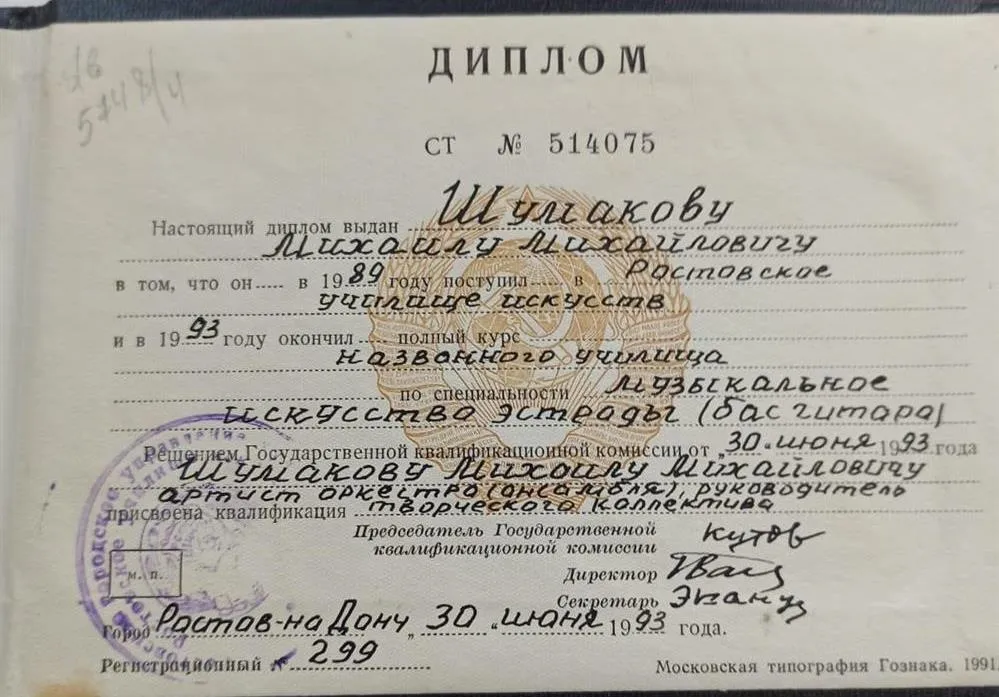 ДИПЛОМ
СТ № 514075
Настоящий диплом выдан Шумакову
Михаилу Михайловичу
в том, что он в 1989 году поступил в Ростовское
училище искусств
и в 1993 году окончил полный курс
названного училища
по специальности музыкальное
искусство эстрады (бас гитара)
Решением Государственной квалификационной комиссии от „30" июня 1993 года
Шумакову Михаилу Михайловичу
артист оркестра (ансамбля), руководитель
присвоена квалификация творческого коллектива
Председатель Государственной
квалификационной комиссии
Директор
Секретарь
м. п.
Город Ростов-на Дону „30" июня 1993 года.
Регистрационный № 299
Московская типография Гознака. 1991.